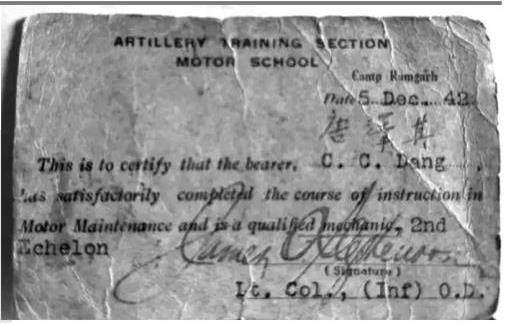 ARTILLERY TRAINING SECTION
MOTOR SCHOOL
Camp Ramgarh
Date 5 Dec. 42
唐
This is to certify that the bearer, C. C. Dang,
has satisfactorily completed the course of instruction in
Motor Maintenance and is a qualified mechanic, 2nd
Echelon James Stephenson
(Signature)
Lt. Col., (Inf) O.D.